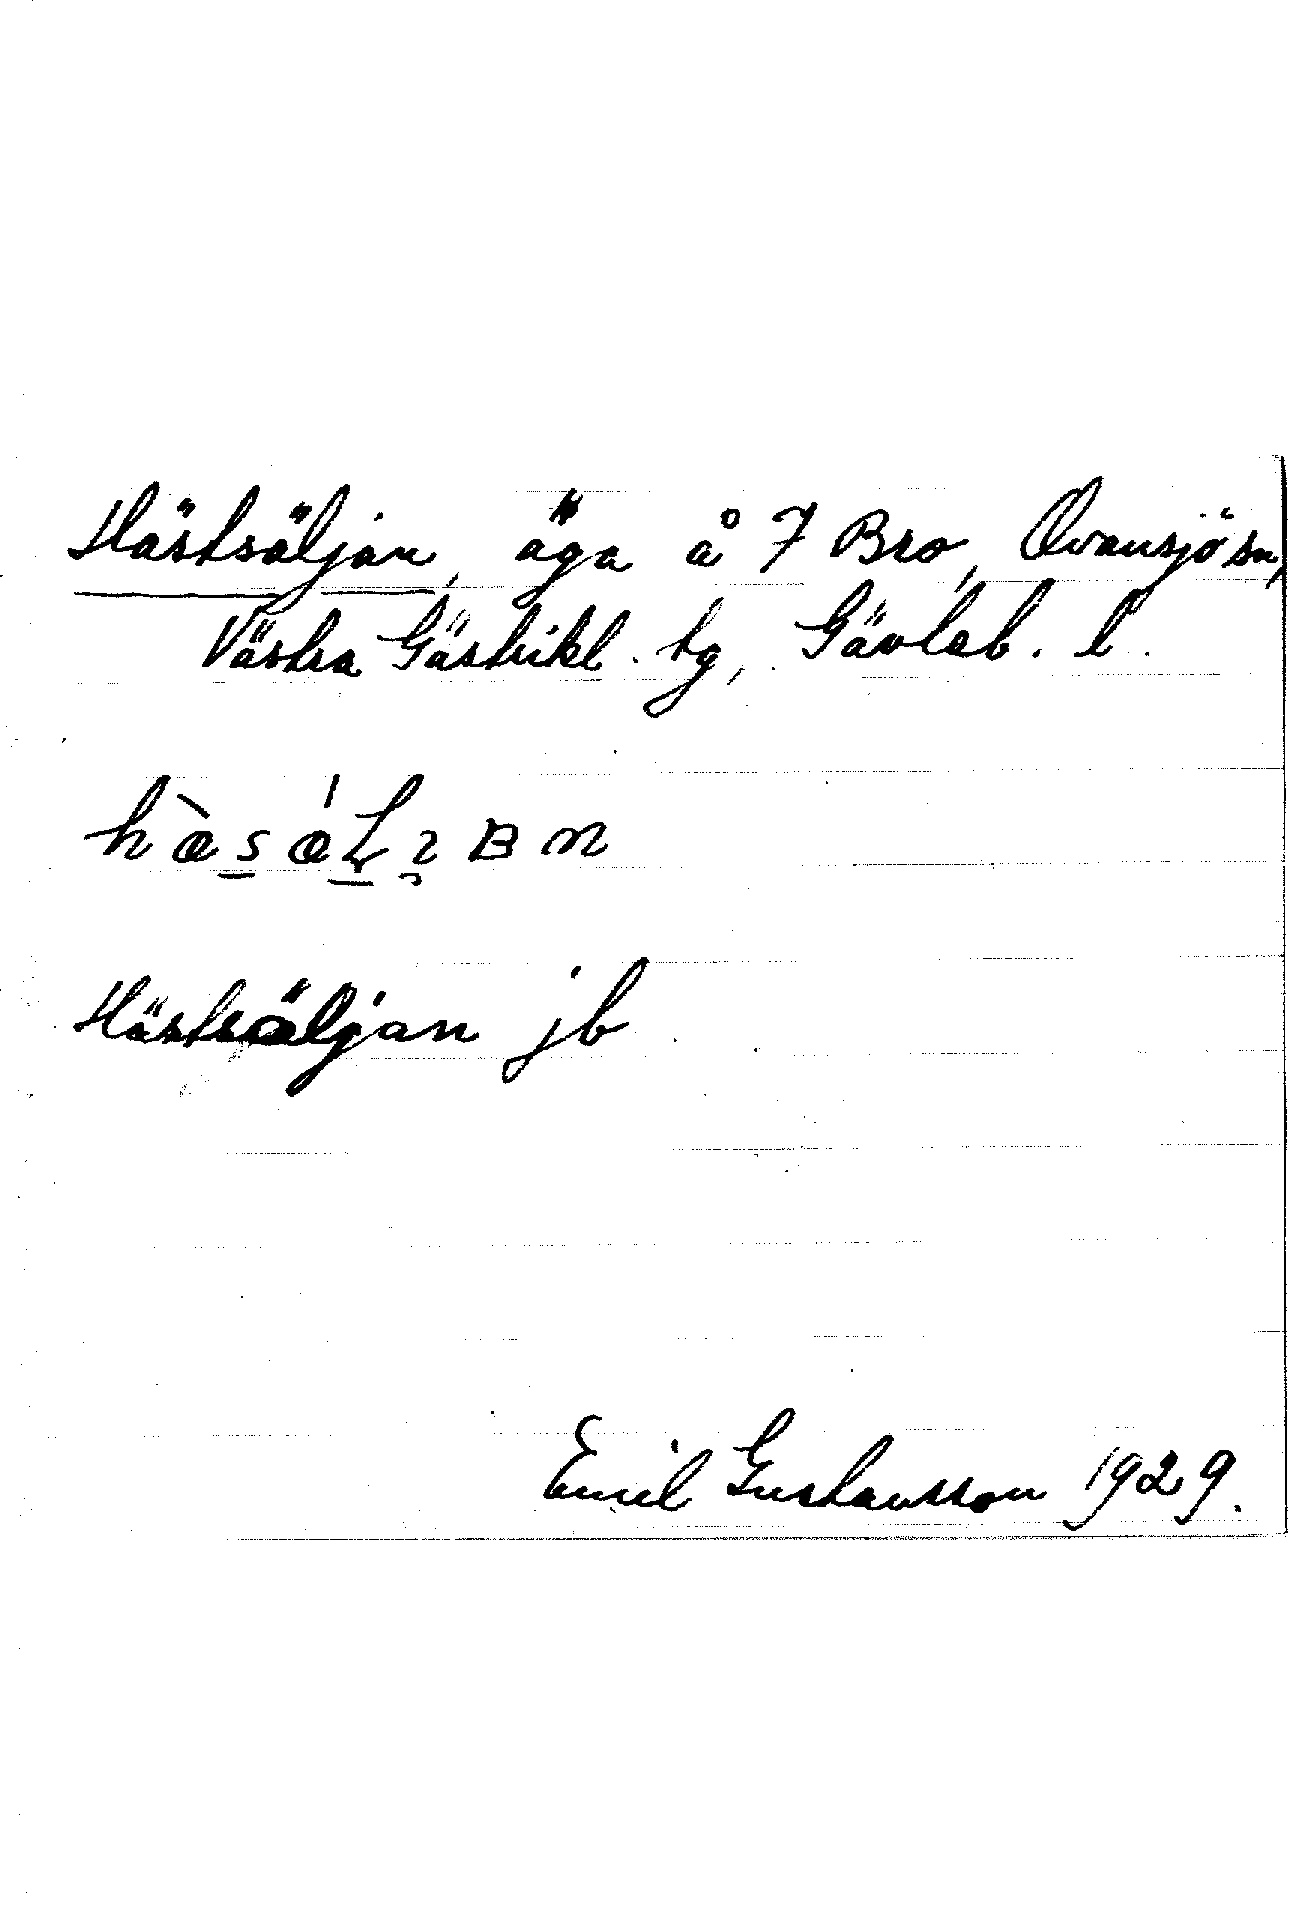 Hästsäljan, äga å 7 Bro, Ovansjö sn,
Västra Gästrikl. tg, Gävleb. l.
Hästsäljan jb
Emil Gustavsson 1929.